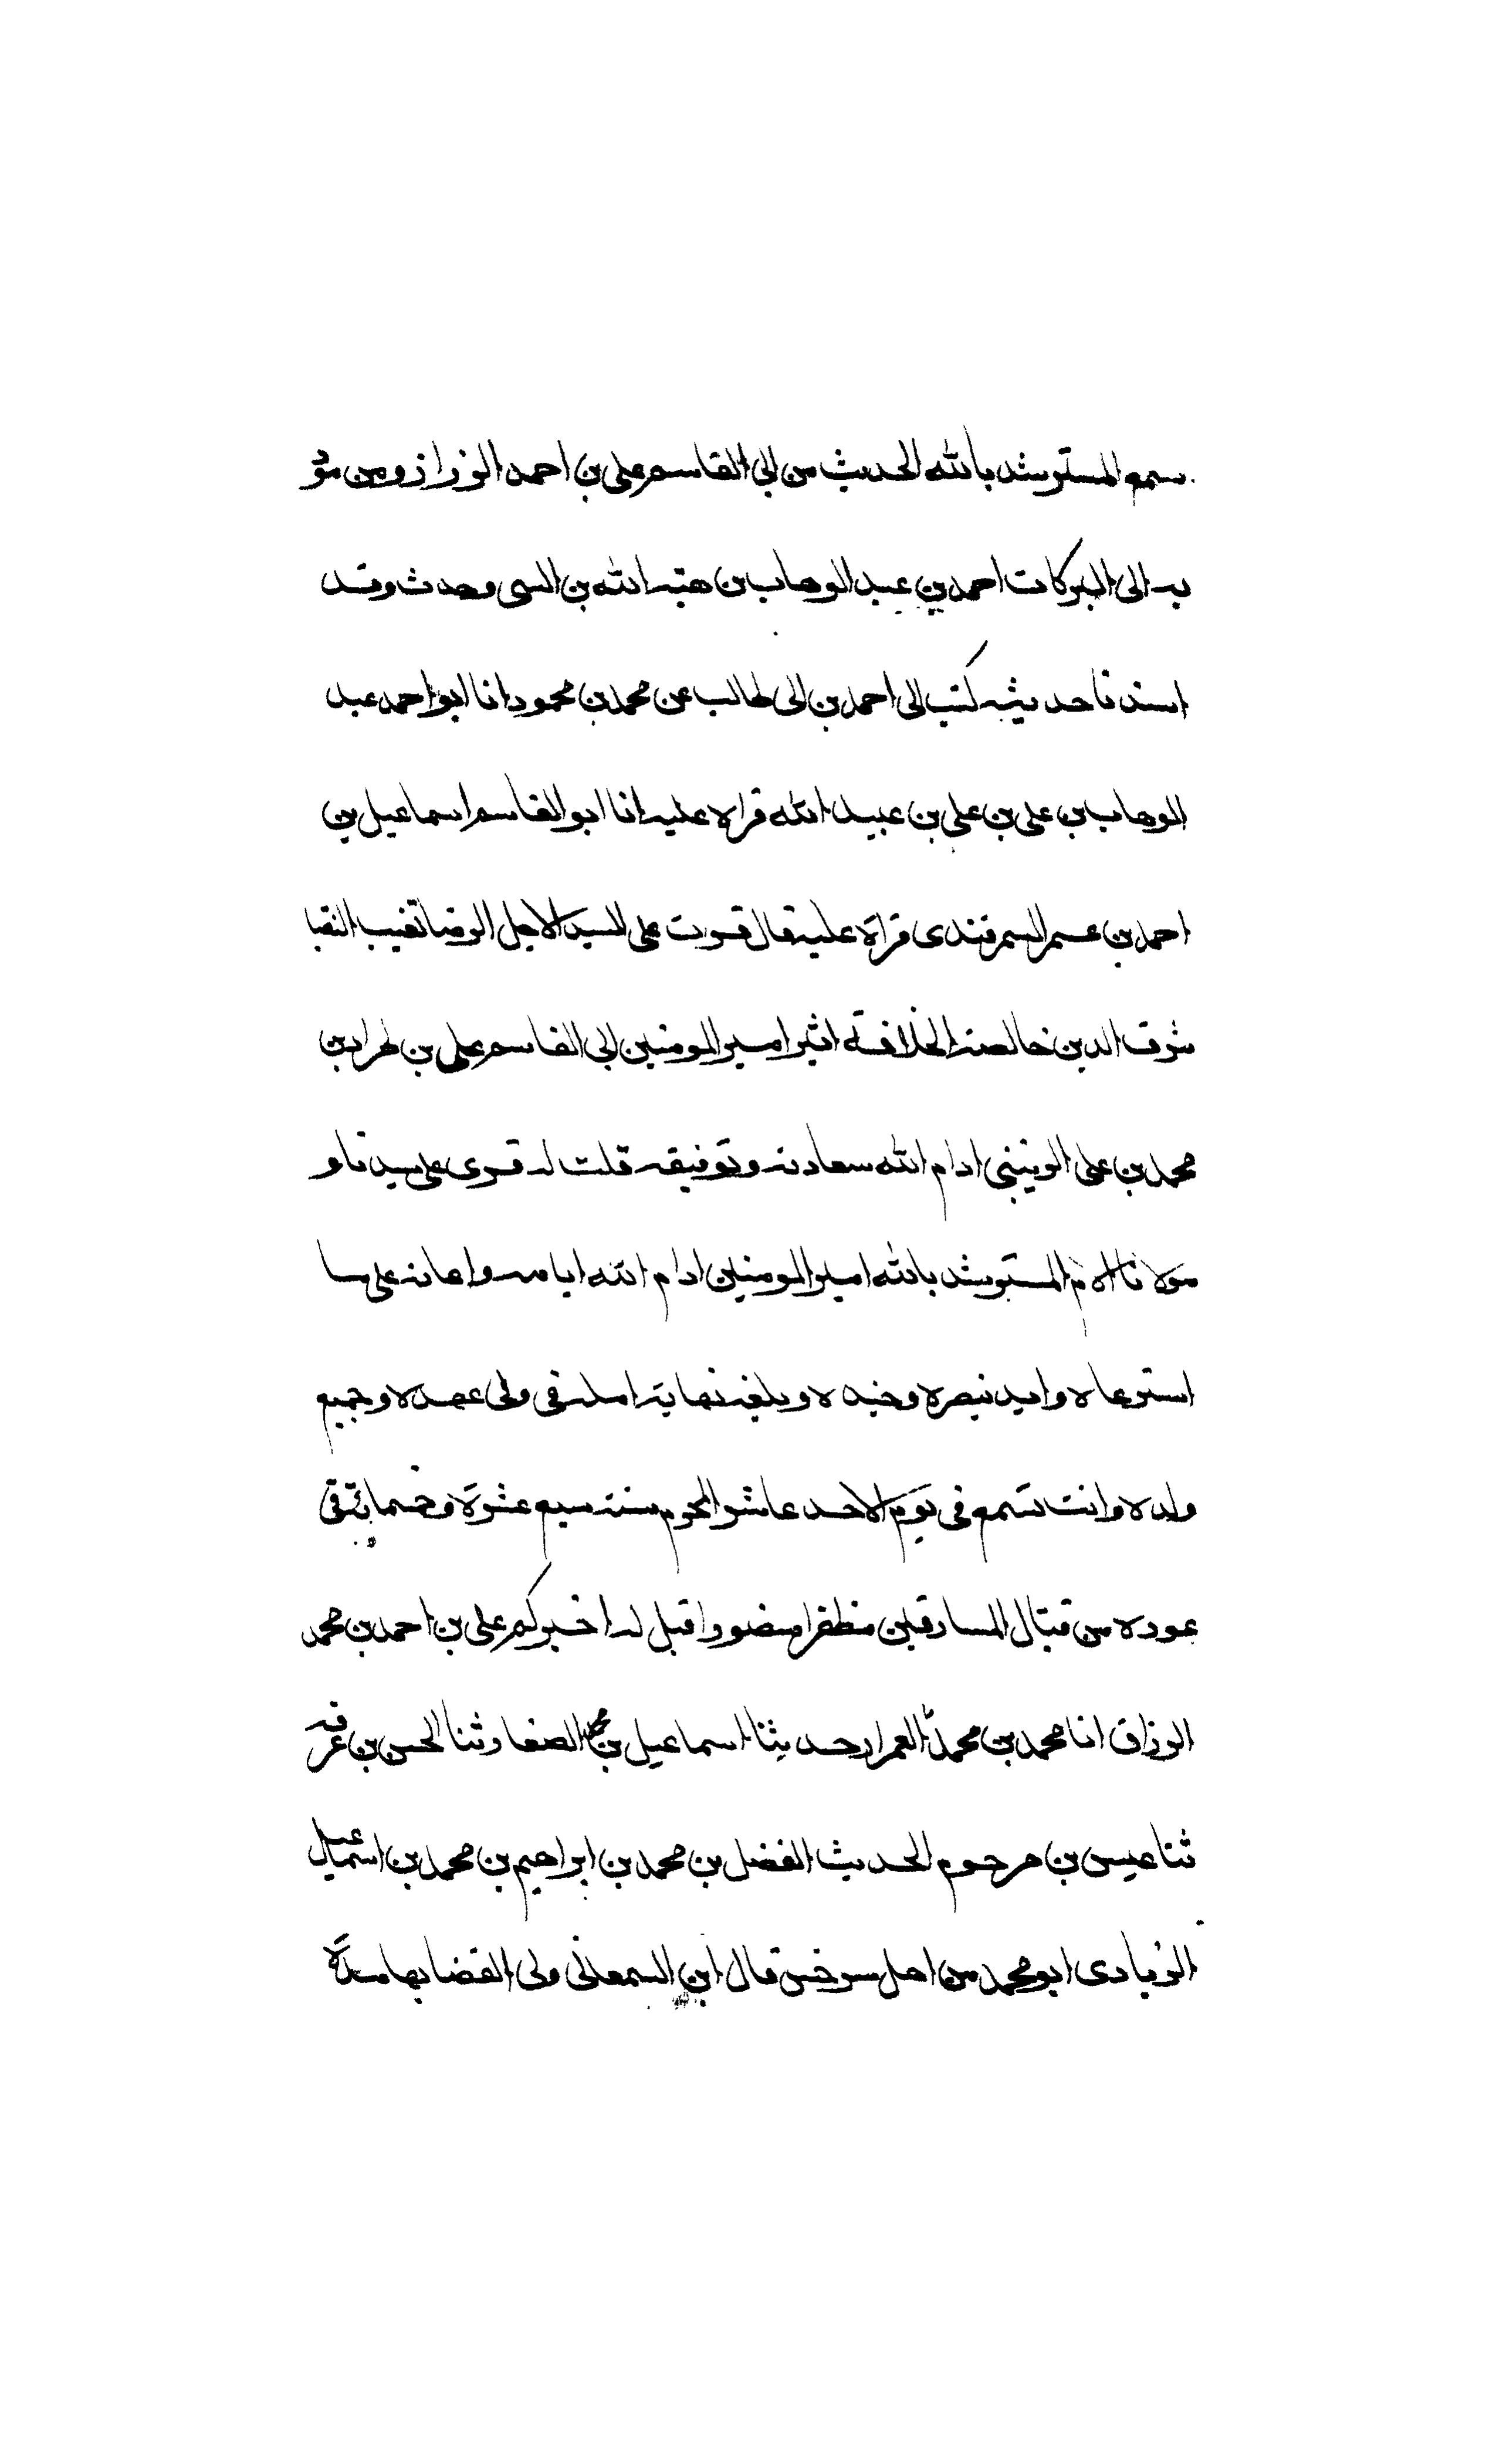 سمع المسترشد بالله الحديث من ابى القاسم على بن احمد الرزاز ومن مؤد
به ابى البركات احمد بن عبد الوهاب بن هبة الله بن السى وحدث وقد
اسندنا حديثه كتب الى احمد بن ابى طالب عن محمد بن محمود انا ابو احمد عبد
الوهاب بن على بن على بن عبيد الله قراة عليه انا ابو القاسم اسماعيل بن
احمد بن عمر السمرقندى قراة عليه قال قرت على السيد الاجل الرضا نقيب النقبا
شرف الدين خالصة الخلافة اثير امير المومنين ابى القاسم على بن طراد بن
محمد بن على الزينبى ادام الله سعادته وتوفيقه قلت له قرى على سيدنا و
مولانا الامام المسترشد بالله امير المومنين ادام الله ايامه واعانه على ما
استرعاه وايد نبصره وجنده وبلغه نهاية امله فى ولى عهده وجميع
ولده وانت تسمع فى يوم الاحد عاشر المحرم سنة سبع عشرة وخمماية فى
عوده من قتال المارقين مظفرا منصورا قيل له اخبركم على بن احمد بن محمد
الرزاق انا محمد بن محمد العمرا رحد يثنا اسماعيل بن محمد الصفار ثنا الحسن بن عرفه
ثنا عيسى بن مرحوم الحديث الفضل بن محمد بن ابراهيم بن محمد بن اسمعيل
الزيادى ابو محمد من اهل سرخس قال ابن السمعانى ولى القضا بها مدة